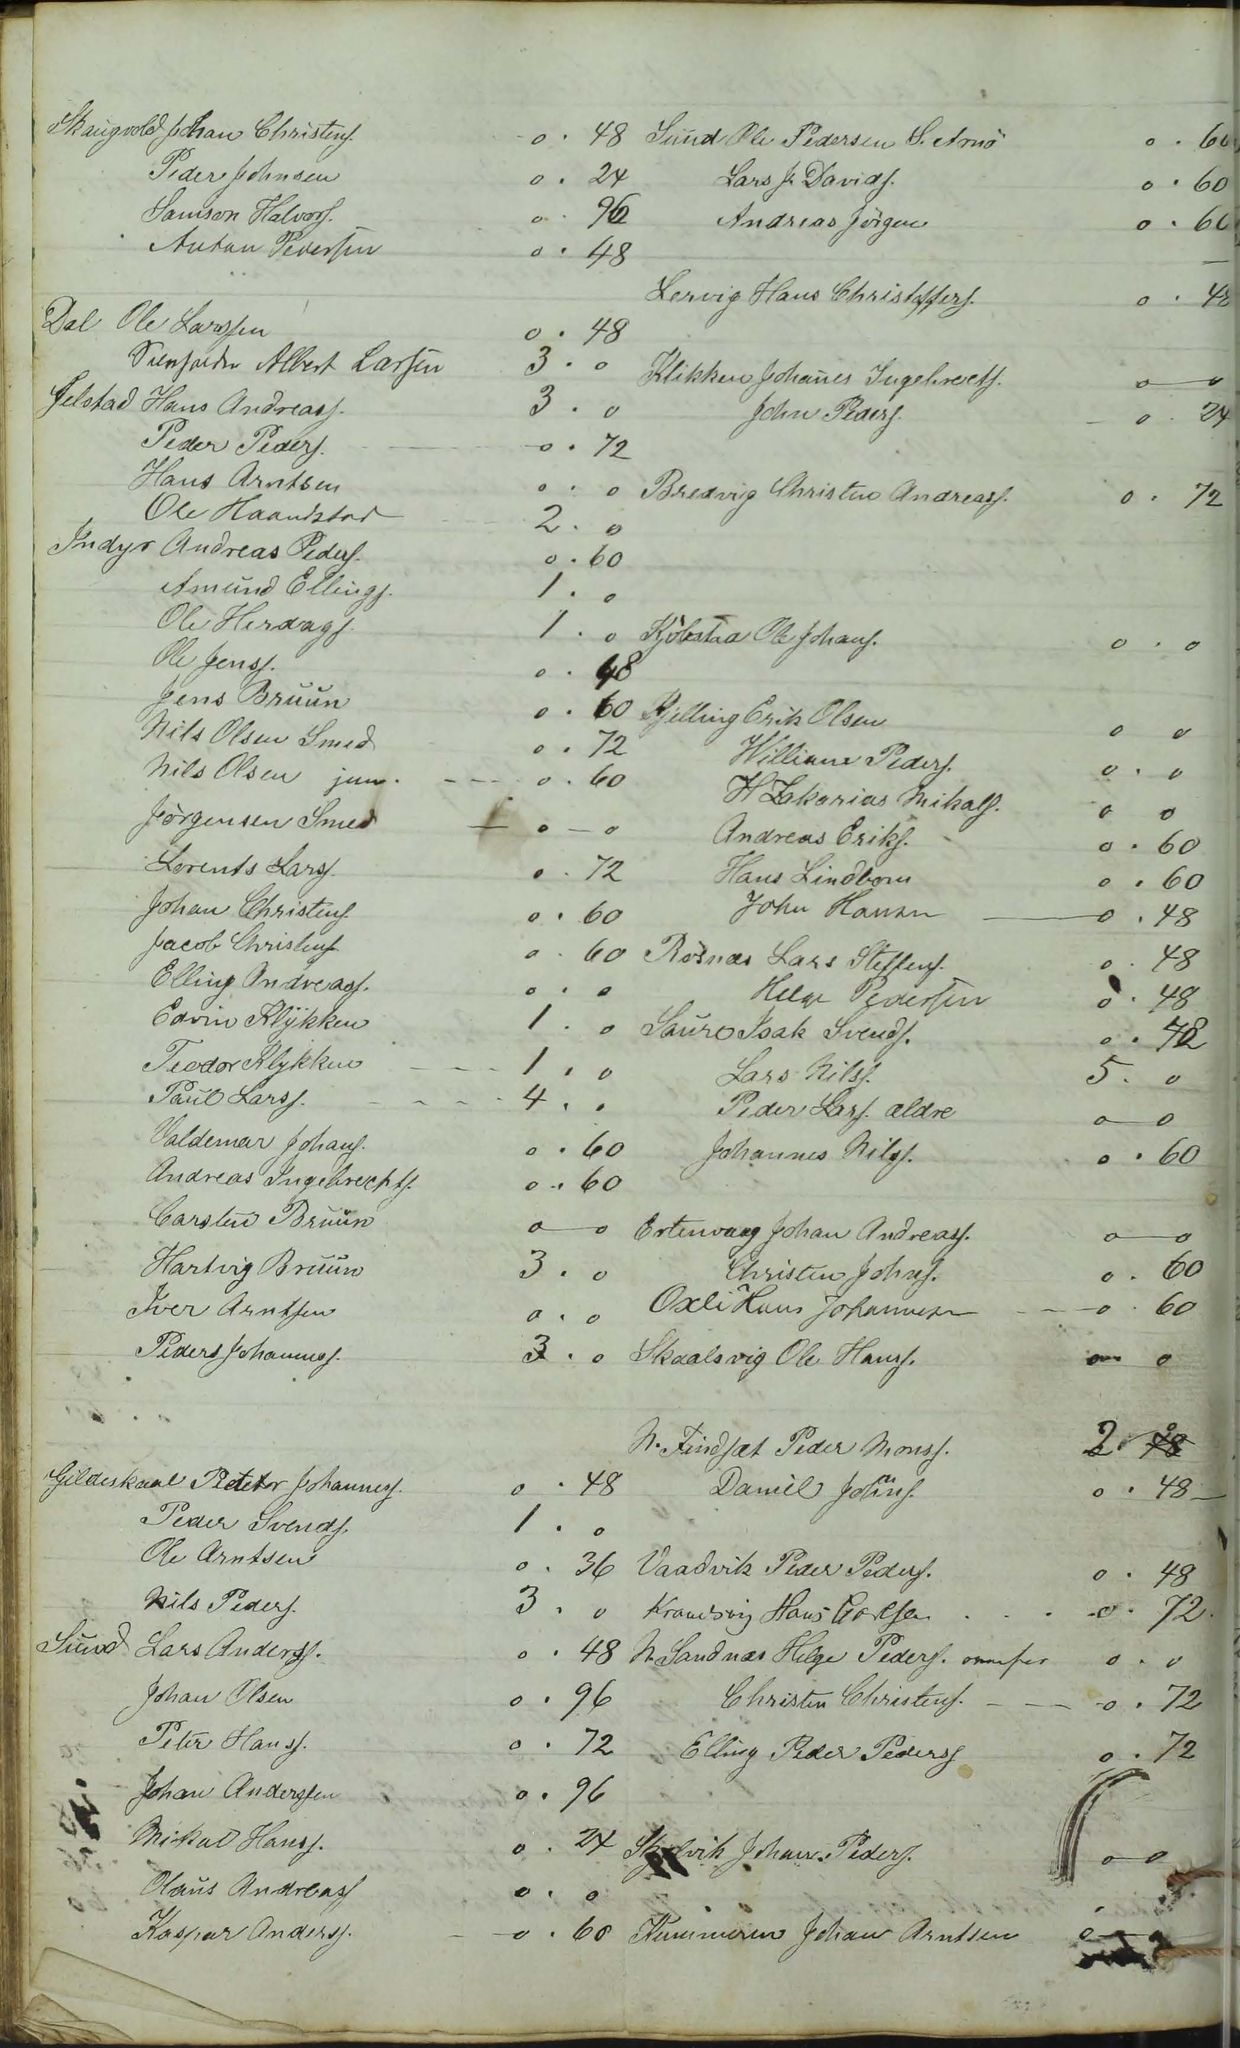 Skaugvold Johan Christens. 0 . 48
Peder Johnsen 0 . 24
Samson Halvors. 0 . 96
Anton Pedersen 0 . 48
Dal Ole Larssen 0 . 48
Albert Larsen 3 . 0
Jelstad Hans Andreass. 3 . 0
Peder Peders. 0 . 72
Hans Arntsen 0 . 0
Ole Haandstad 2 . 0
Indyr Andreas Peders. 0 . 60
Amund Ellings. 1 . 0
Ole Herdags. 1 . 0
Ole Jenss. 0 . 48
Jens Bruun 0 . 60
Nils Olsen Smed 0 . 72
Nils Olsen jun. 0 . 60
Jörgensen Smed 0 - 0
Lorents Lars. 0 . 72
Johan Christens. 0 . 60
Jacob Christens. 0 . 60
Elling Andreass. 0 . 0
Edvin Klykken 1 . 0
Teodor Klykken 1 . 0
Paul Larss. 4 . 0
Valdemar Johans. 0 . 60
Andreas Ingebrechts. 0 . 60
Carsten Bruun 0 - 0
Hartvig Bruun 3 . 0
Iver Arntsen 0 . 0
Peder Johannes. 3 . 0
Gildeskaal Petter Johanness. 0 . 48
Peder Svends. 1 . 0
Ole Arntsen 0 . 36
Nils Peders. 3 . 0
Sund Lars Anderss. 0 . 48
Johan Olsen 0 . 96
Peter Hanss. 0 . 72
Johan Anderssen 0 . 96
Mikal Hanss. 0 . 24
Olaus Andreass 0 . 0
Kaspar Anderss. 0 . 60
Sund Ole Pedersen S. Arnö 0 . 60
Lars J. Davids. 0 . 60
Andreas Jörgen 0 . 60
Lervig Hans Christoffers. 0 . 48
Klikken Johannes Ingebrects. 0 - 0
John Peders. 0 . 24
Bredvig Christen Andreass. 0 . 72
Kjöbstad Ole Johans. 0 . 0
Kjelling Erik Olsen 0 0
William Peders. 0 . 0
H Zakarias Mikals. 0 0
Andreas Eriks. 0 . 60
Hans Lindbom 0 . 60
John Hansen 0 . 48
Rösnæs Lars Steffens. 0 . 48
Helge Pedersen 0 . 48
Saura Isak Svends. 0 . 72
Lars Nilss. 5 . 0
Peder Lars. ældre 0 - 0
Johannes Nilss. 0 . 60
Ertenvaag Johan Andreass. 0 - 0
Christen Johns. 0 . 60
Oxli Hans Johannesen 0 . 60
Skaalsvig Ole Hanss. 0 0
N. Findsæt Peder Monss. 2 . 0
Daniel Johns. 0 . 48
Vaadvik Peder Peders. 0 . 48
Hans 0 . 72
N. Sandnæs Helge Peders. 0 . 0
Christen Christens. 0 . 72
Elling Peder Pederss 0 . 72
Johan Peders. 0 - 0
Johan Arntsen